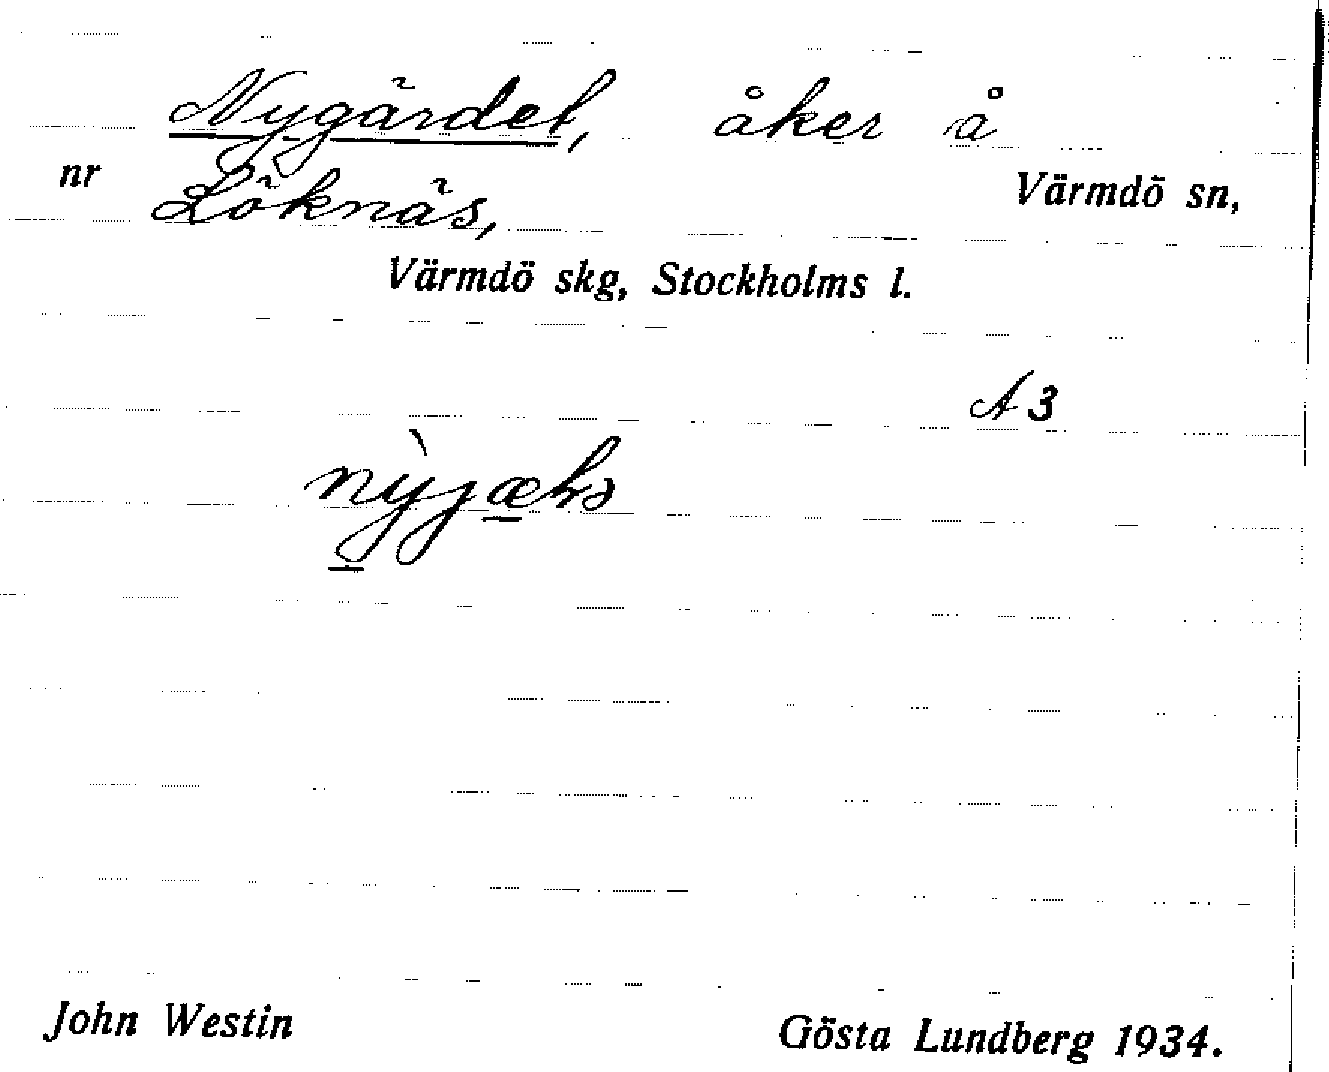 Nygärdet, åker å
nr Löknäs, Värmdö sn,
Värmdö skg, Stockholms l.
A3
John Westin Gösta Lundberg 1934.